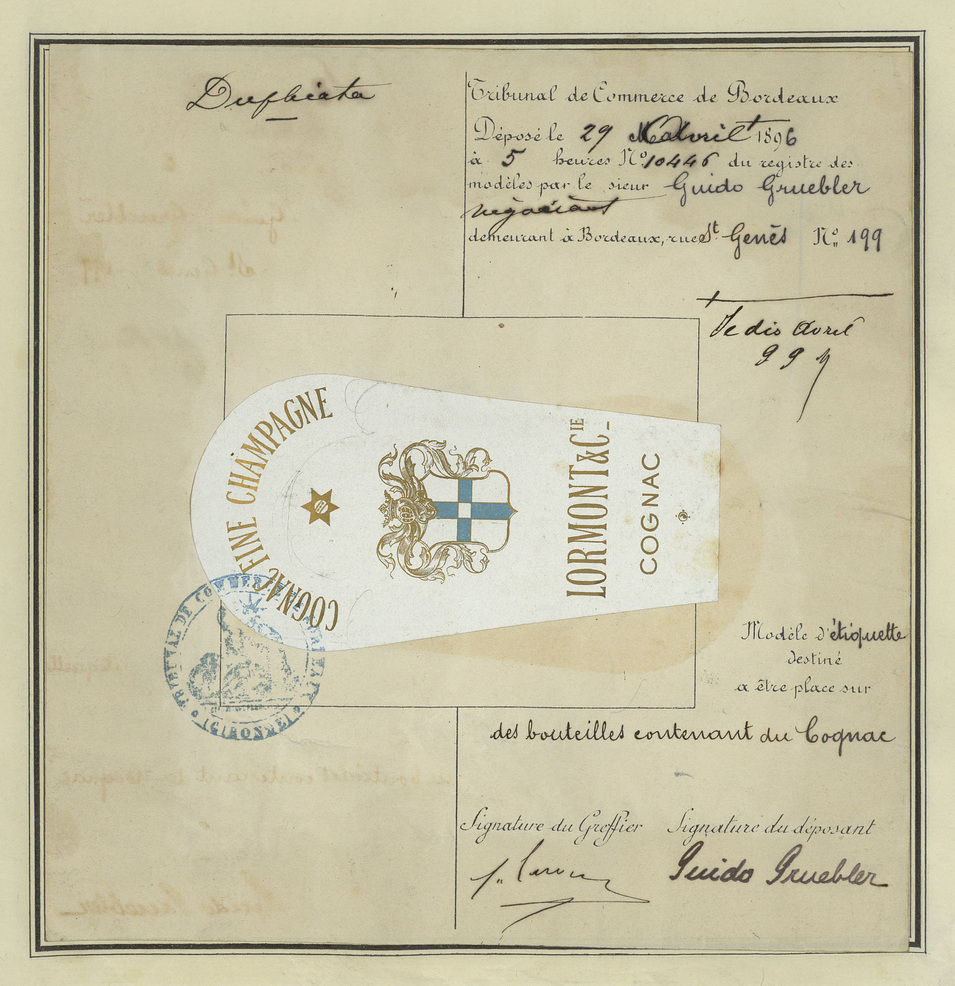 Duplicata
Tribunal de Commerce de Bordeaux
Déposé le 29 Avril 1896
à 5 heures Nº 10446 du registre des
modèles par le sieur Guido Gruebler
négociant
demeurant à Bordeaux, rue St Genès Nº 199
dis Avril
COGNAC FINE CHAMPAGNE
LORMONT & CIE
COGNAC
TRIBUNAL DE COMMERCE DE BORDEAUX
(GIRONDE)
Modèle d'étiquette
destiné
a être place sur
des bouteilles contenant du Cognac
Signature du Greffier Signature du déposant
Guido Gruebler